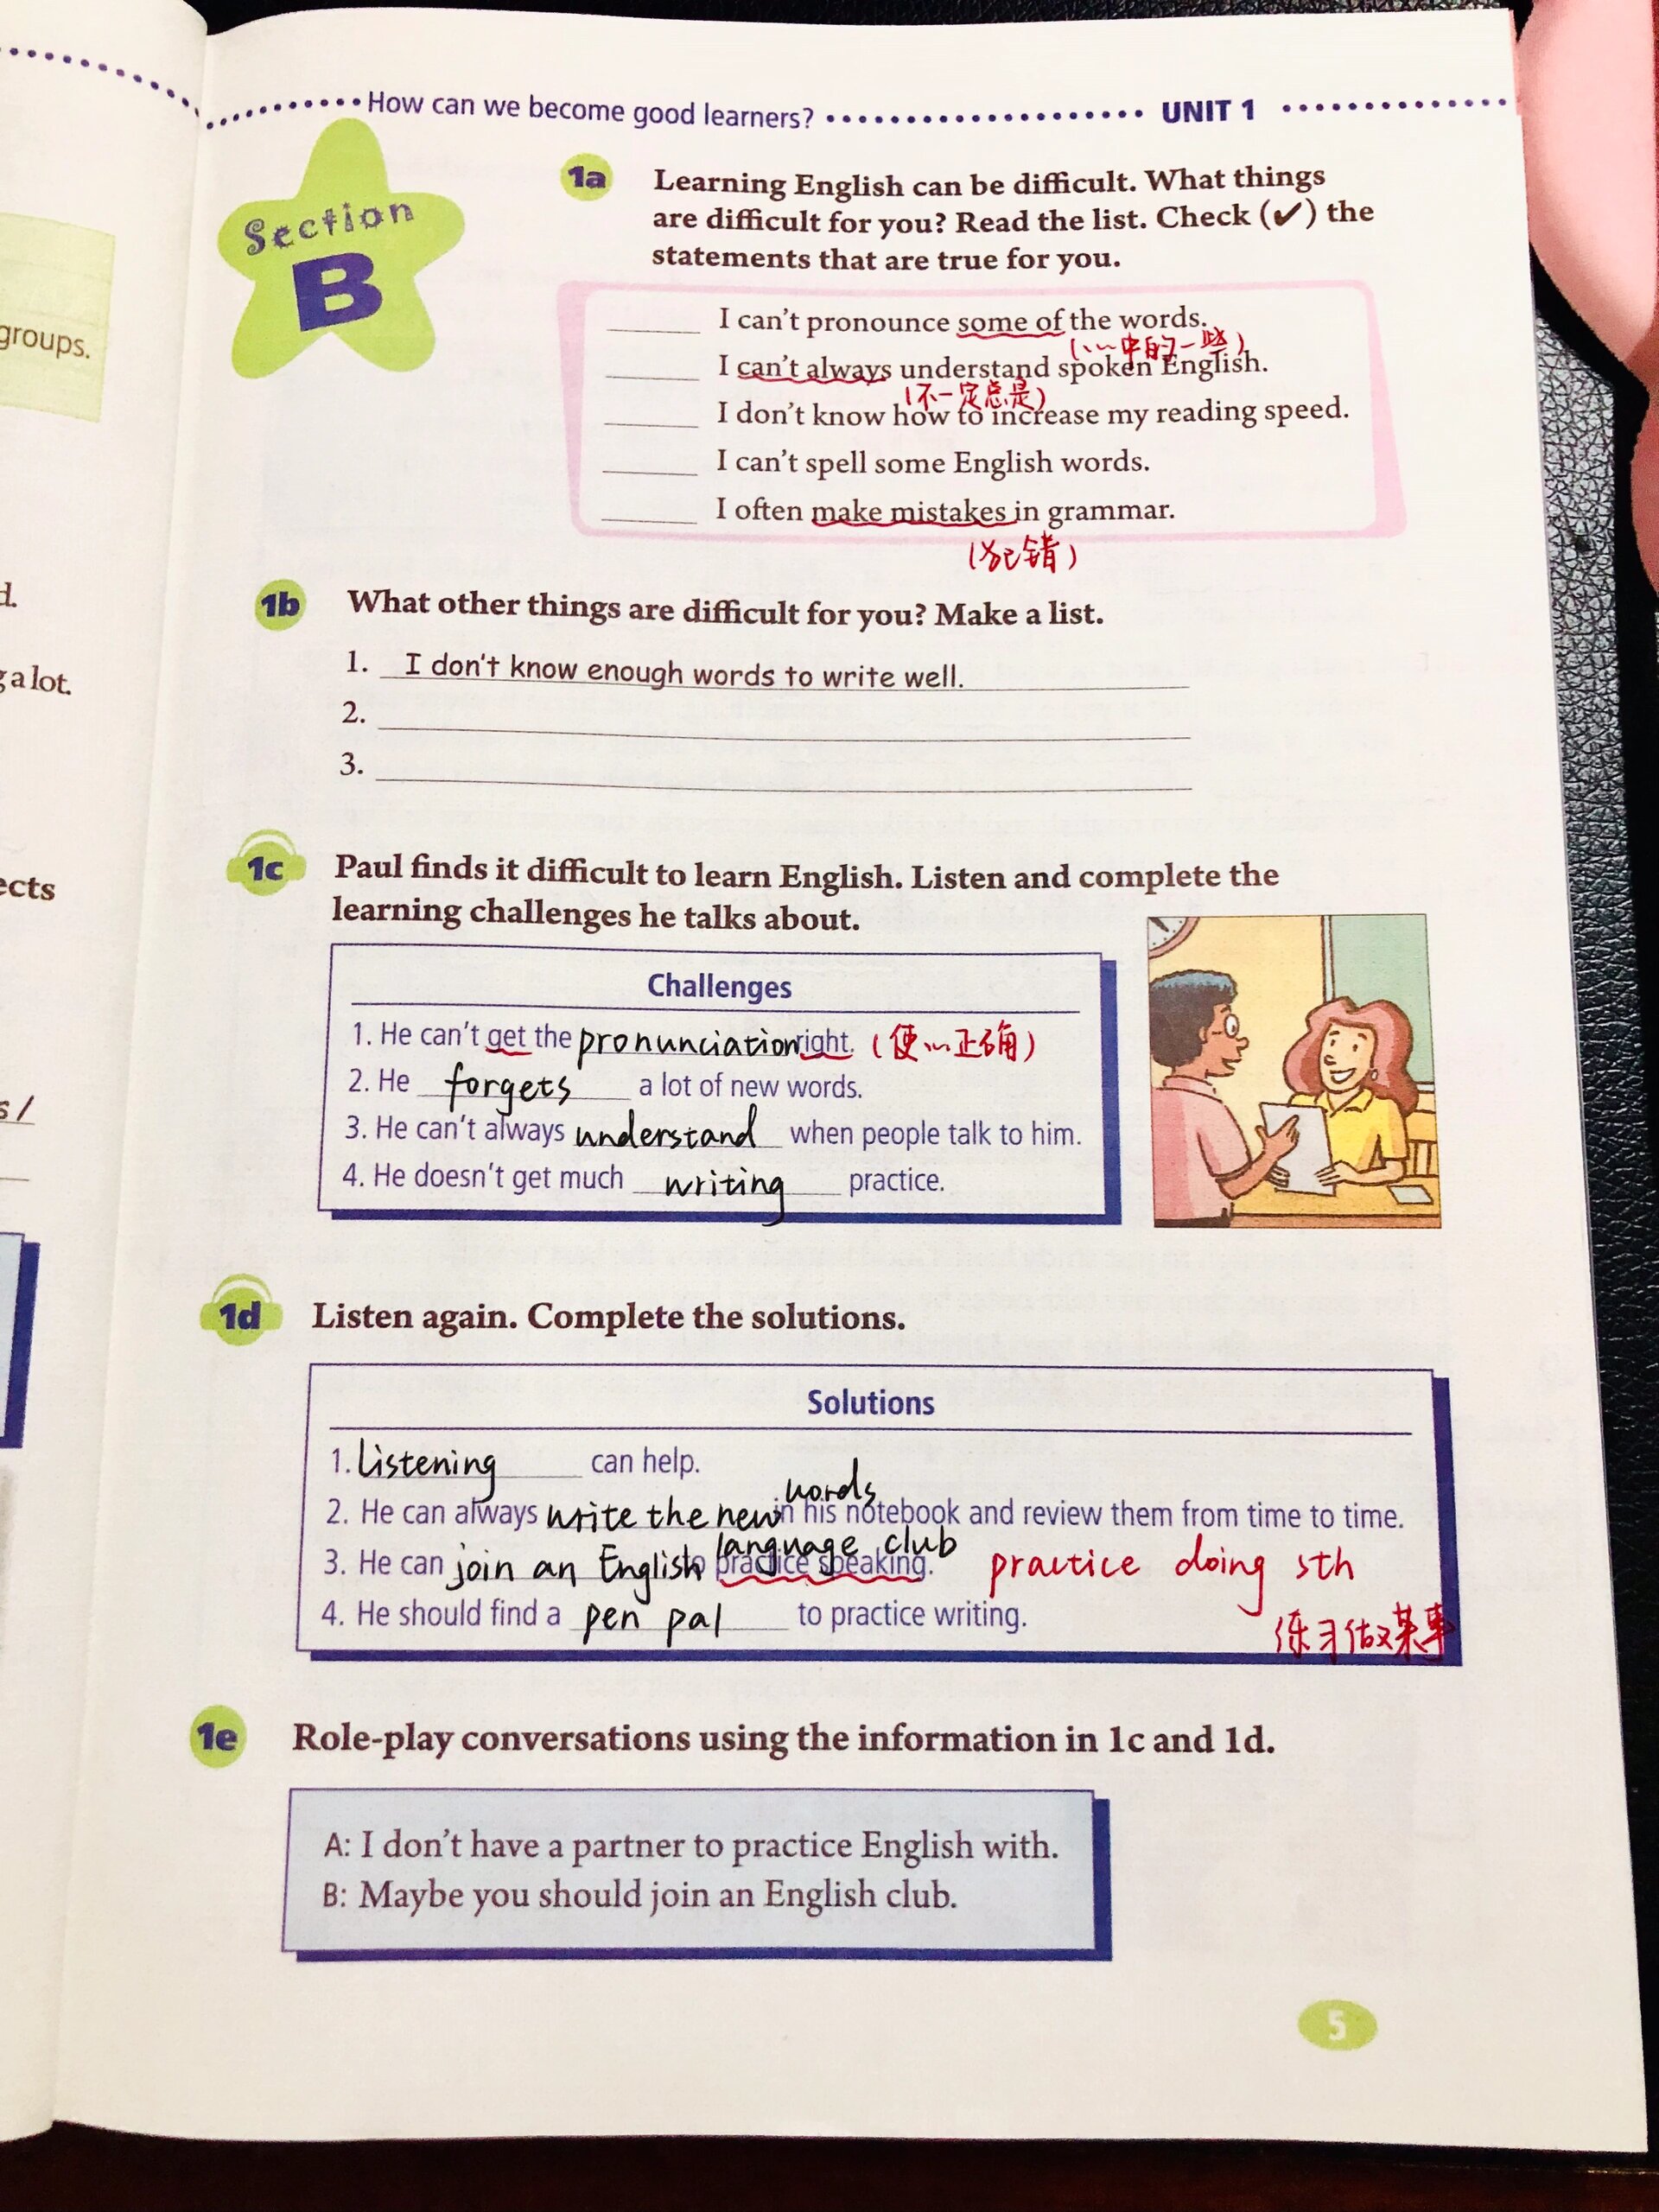 How can we become good learners? UNIT 1
Section
B
groups.
1a Learning English can be difficult. What things
are difficult for you? Read the list. Check (✔) the
statements that are true for you.
I can't pronounce some of the words.
(…中的一些)
I can't always understand spoken English.
(不一定总是)
I don't know how to increase my reading speed.
I can't spell some English words.
I often make mistakes in grammar.
(犯错)
d.
1b What other things are difficult for you? Make a list.
1. I don't know enough words to write well.
g a lot.
2.
3.
1c Paul finds it difficult to learn English. Listen and complete the
ects
learning challenges he talks about.
Challenges
1. He can't get the pronunciation right. (使…正确)
2. He forgets a lot of new words.
s/
3. He can't always understand when people talk to him.
4. He doesn't get much writing practice.
1d Listen again. Complete the solutions.
Solutions
1. Listening can help.
words
2. He can always write the new in his notebook and review them from time to time.
language club
3. He can join an English to practice speaking. practice doing sth
4. He should find a pen pal to practice writing. 练习做某事
1e Role-play conversations using the information in 1c and 1d.
A: I don't have a partner to practice English with.
B: Maybe you should join an English club.
5